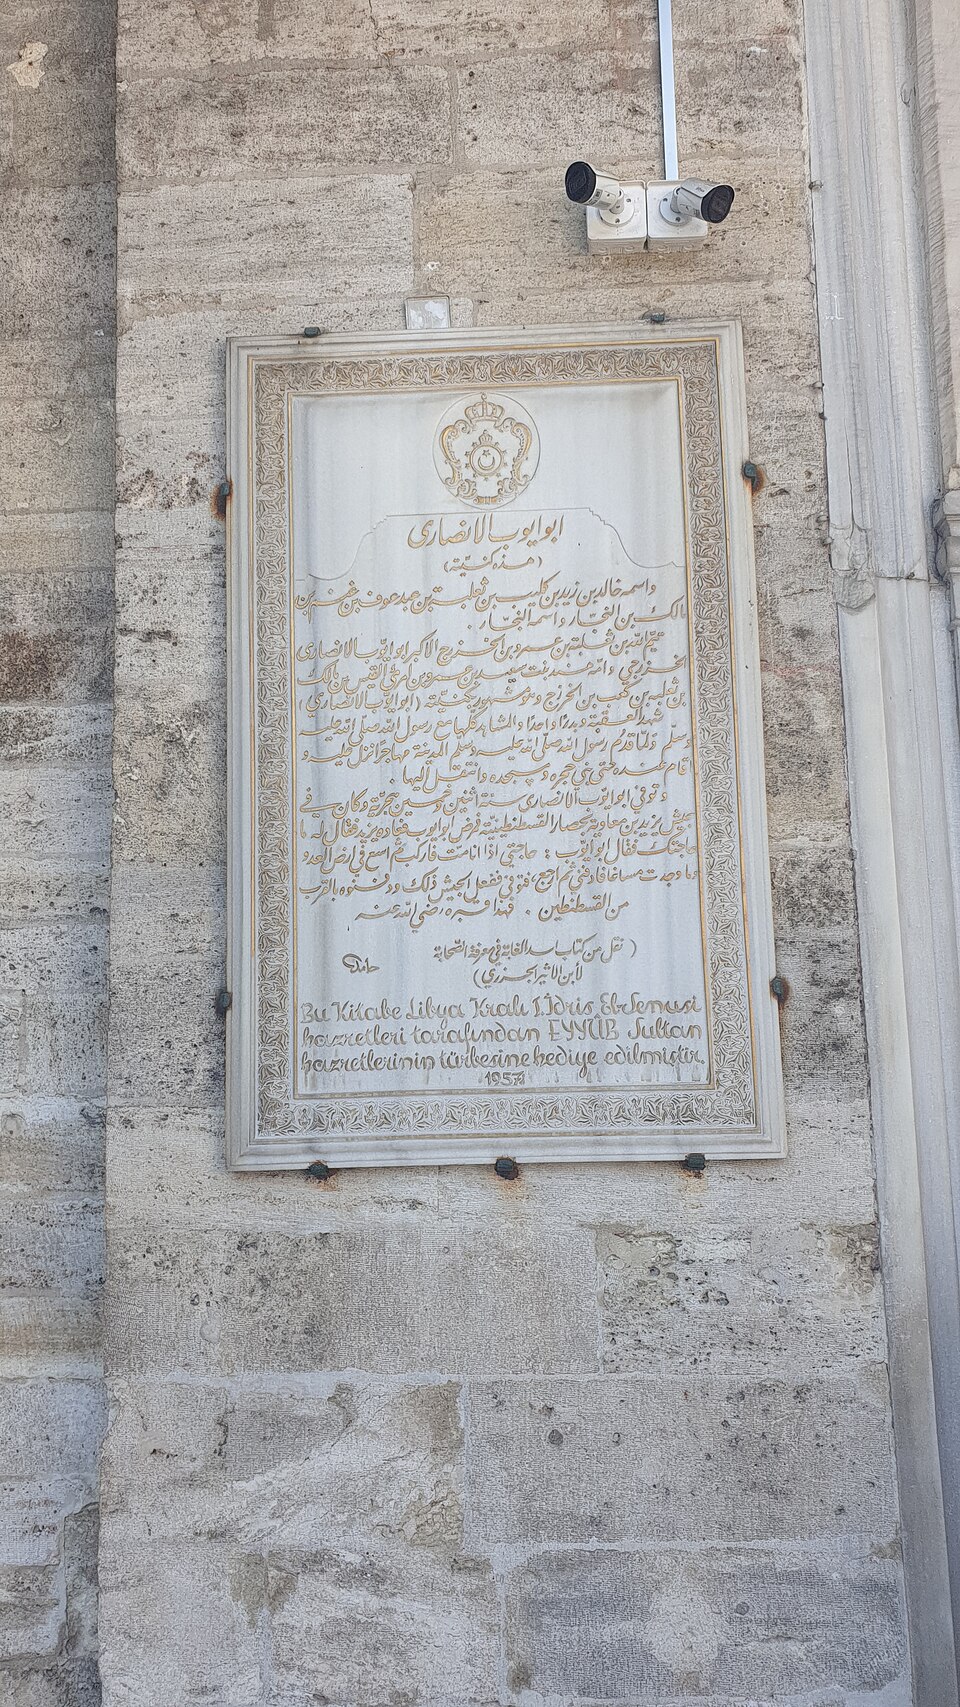 ابو ايوب الانصارى
(هذه كنيّة)
واسمه خالد بن زيد بن كليب بن ثعلبة بن عبد عوف بن غنم بن
مالك بن النجّار واسمه النجّار .
تيم اللّه بن ثعلبة بن عمرو بن الخزرج الاكبر ابو ايّوب الانصارى
الخزرجي وامّه هند بنت سعيد بن عمرو بن امرئ القيس بن مالك
بن ثعلبه بن كعب بن الخزرج وهو مشهور بكنيّته (ابو ايوب الانصاري)
شهد العقبة وبدرًا واحدًا والمشاهد كلّها مع رسول اللّه صلّى اللّه عليه
وسلّم ولمّا قدم رسول اللّه صلّى اللّه عليه وسلّم المدينة مهاجرًا نزل عليه و
اقام عنده حتى بنى حجره و مسجده وانتقل اليها .
وتوفي ابو ايّوب الانصارى سنة اثنين وخمسين هجريّة وكان في
جيش يزيد بن معاوية بحصار القسطنطينيّة فرض ابو ايوب فعاده يزيد فقال له ما
حاجتك فقال ابو ايّوب : حاجتي اذا انا مت فاركب ثم اسع في ارض العدو
وما وجدت مساغا فادفني ثم ارجع ، فتوفي ففعل الجيش ذلك ودفنوه بالقرب
من القسطنطين . فهذا قبره رضي اللّه عنه
(نقل من كتاب اسد الغابة في معرفة الصّحابة
لأبن الاثير الجزري)
حامد
Bu Kitabe Libya Kralı I. İdris Es-Senusi
hazretleri tarafından EYYÛB Sultan
hazretlerinin türbesine hediye edilmiştir.